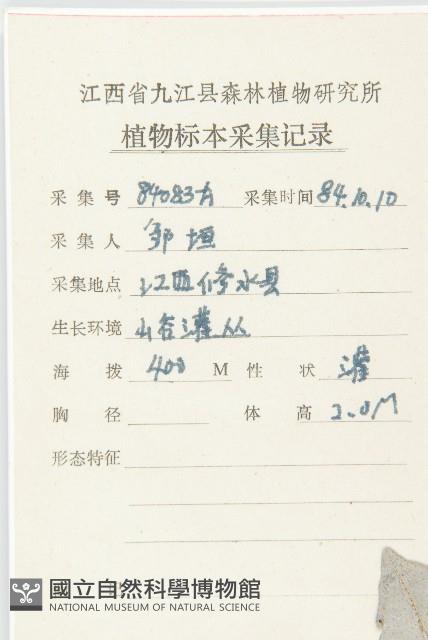 江西省九江县森林植物研究所
植物标本采集记录
采集号 84083 采集时间 84.10.10
采集人 邹垣
采集地点 江西修水县
生长环境 山谷灌丛
海拨 400 M 性状 灌
胸径 体高 2.0M
形态特征
國立自然科學博物館
NATIONAL MUSEUM OF NATURAL SCIENCE